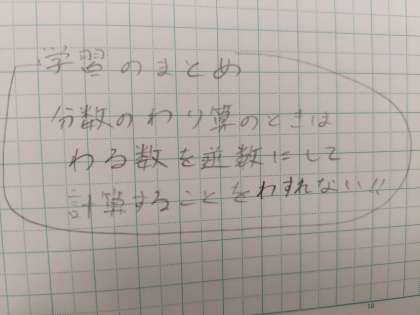 学習のまとめ
分数のわり算のときは
わる数を逆数にして
計算することをわすれない!!
10